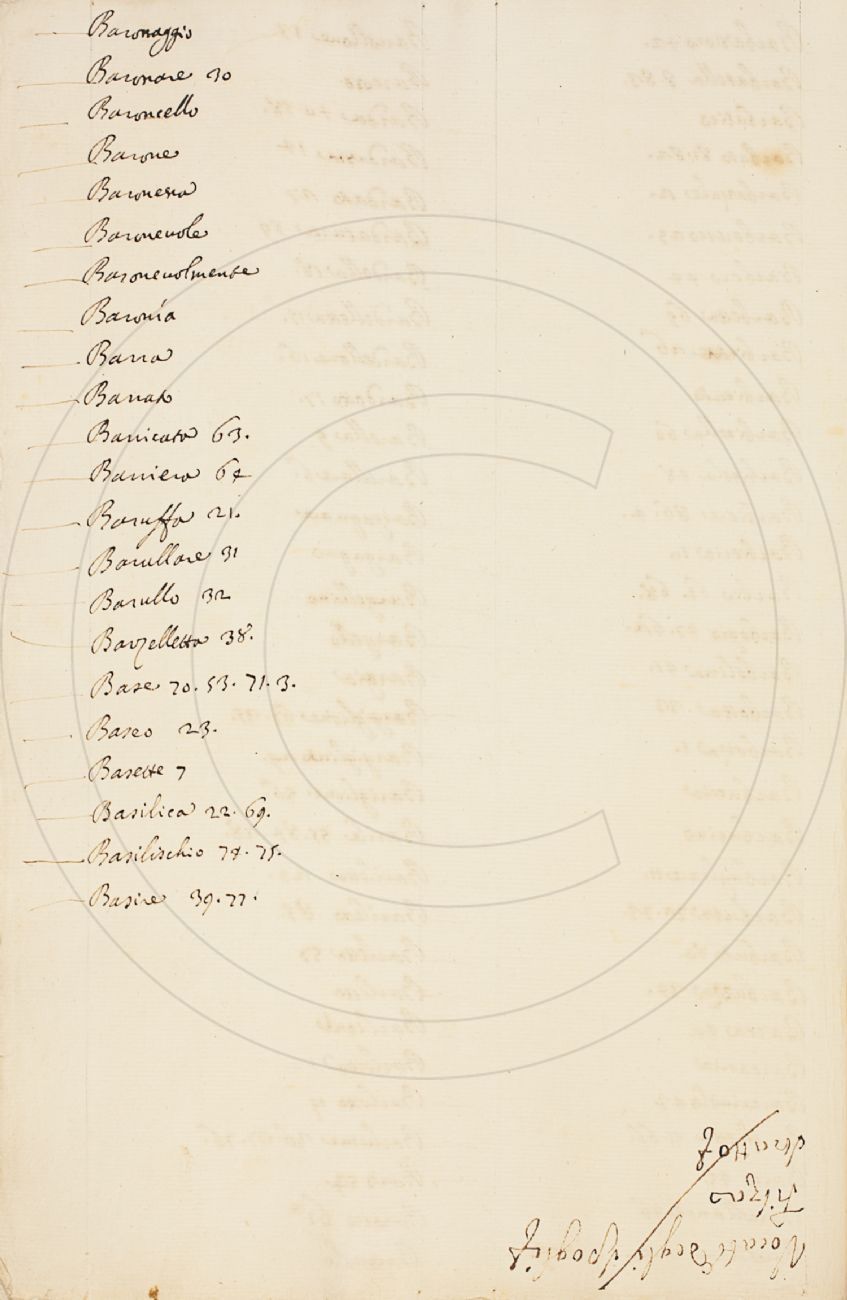 Baronaggio
Baronare 30
Baroncello
Barone
Baronessa
Baronevole
Baronevolmente
Baronía
Barra
Barrato
Barricata 63.
Barriera 64
Baruffa 21.
Barullare 31
Barullo 32
Barzelletta 38.
Base 70. 53. 71. 3.
Baseo 23.
Basette 7
Basilica 22. 69.
Basilischio 74. 75.
Basire 39. 77.
Vocab. degli Spogli